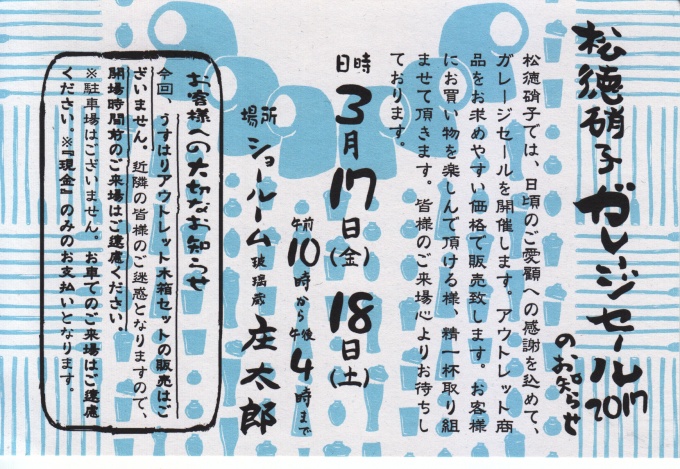 松徳硝子ガレージセール2017
のお知らせ
松徳硝子では、日頃のご愛顧への感謝を込めて、
ガレージセールを開催します。アウトレット商
品をお求めやすい価格で販売致します。お客様
にお買い物を楽しんで頂ける様、精一杯取り組
ませて頂きます。皆様のご来場心よりお待ちし
ております。
日時 3月17日(金) 18日(土)
午前10時から午後4時まで
場所 ショールーム 玻璃蔵 庄太郎
お客様への大切なお知らせ
今回、うすはりアウトレット木箱セットの販売はご
ざいません。近隣の皆様のご迷惑となりますので、
開場時間前のご来場はご遠慮ください。
※駐車場はございません。お車でのご来場はご遠慮
ください。※『現金』のみのお支払いとなります。